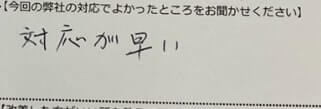 【今回の弊社の対応でよかったところをお聞かせください】
対応が早い